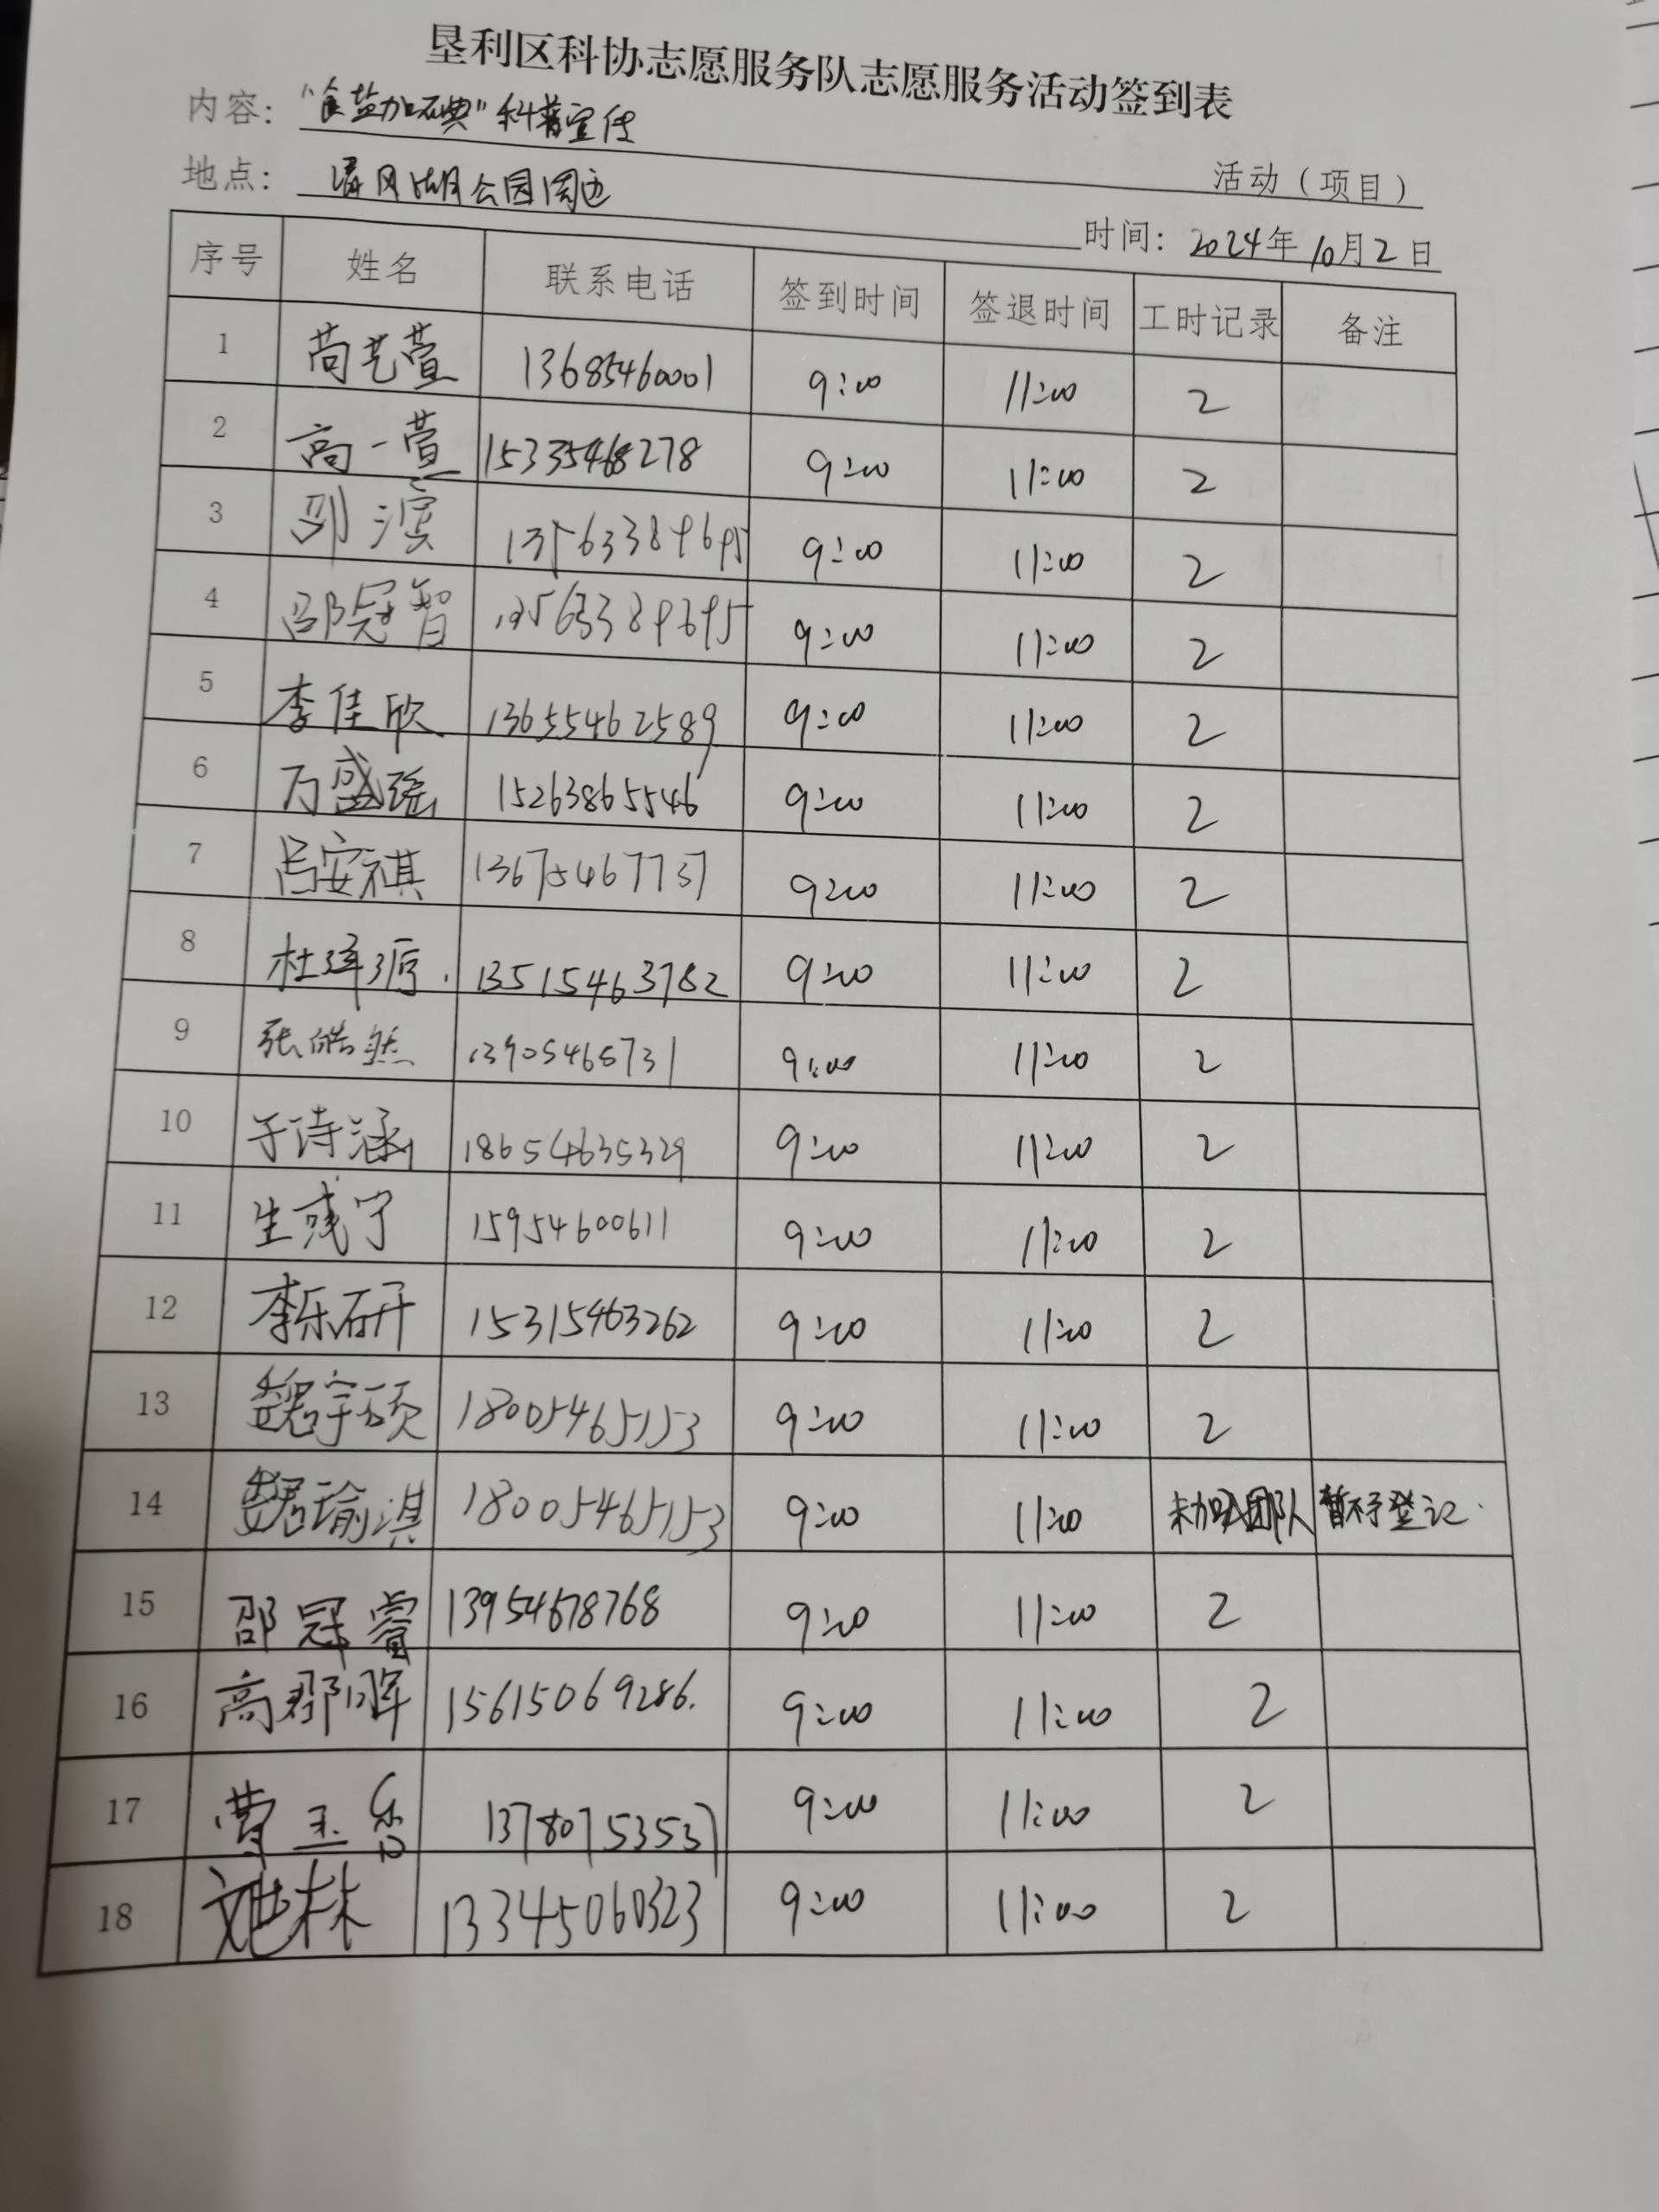 垦利区科协志愿服务队志愿服务活动签到表
内容： “食盐加碘”科普宣传
活动（项目）
地点： 清风湖公园周边
时间： 2024年10月2日
序号 姓名 联系电话 签到时间 签退时间 工时记录 备注
1 尚艺萱 13685460001 9:00 11:00 2
2 高一萱 15335468278 9:00 11:00 2
3 邵滨 13563389695 9:00 11:00 2
4 邵冠智 13563389695 9:00 11:00 2
5 李佳欣 13655462589 9:00 11:00 2
6 万盛瑶 15263865546 9:00 11:00 2
7 吕安祺 13675467737 9:00 11:00 2
8 杜 13515463782 9:00 11:00 2
9 张皓然 13905468731 9:00 11:00 2
10 于诗涵 18654635329 9:00 11:00 2
11 生彧宁 15954600611 9:00 11:00 2
12 李乐研 15315463262 9:00 11:00 2
13 魏宇硕 18005465153 9:00 11:00 2
14 魏瑜淇 18005465153 9:00 11:00 未加入团队 暂不予登记
15 邵冠睿 13954678768 9:00 11:00 2
16 高郡晖 15615069286. 9:00 11:00 2
17 曹玉香 13780753537 9:00 11:00 2
18 林 13345060323 9:00 11:00 2